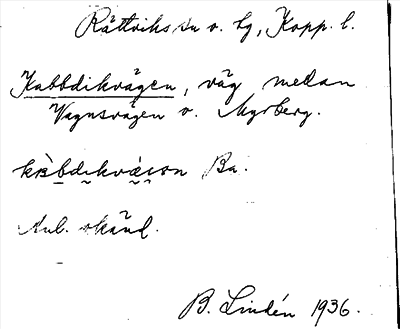 Rättviks sn o. tg, Kopp. l.
Kabbdikvägen, väg mellan
Vagnsvägen o. Myrberg.
Ba.
Anl. okänd.
B. Lindén 1936.